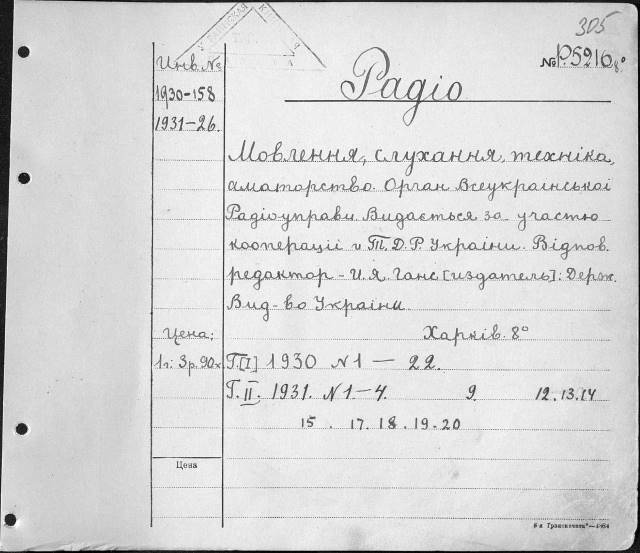 305
№ Р.5216 8°
Инв. №
1930-158
1931-26.
Радіо
Мовлення, слухання, техніка,
аматорство. Орган Всеукраїнської
Радіоуправи. Видається за участю
кооперації и Т.Д.Р. України. Відпов.
редактор - И. Я. Ганс [издатель]: Держ.
Вид-во України
Харків. 8°
Цена:
1 г: 3 р. 90 к
Г. [I] 1930 N 1 — 22.
Г. II. 1931. N 1-4. 9. 12. 13. 14
15. 17. 18. 19-20
Цена